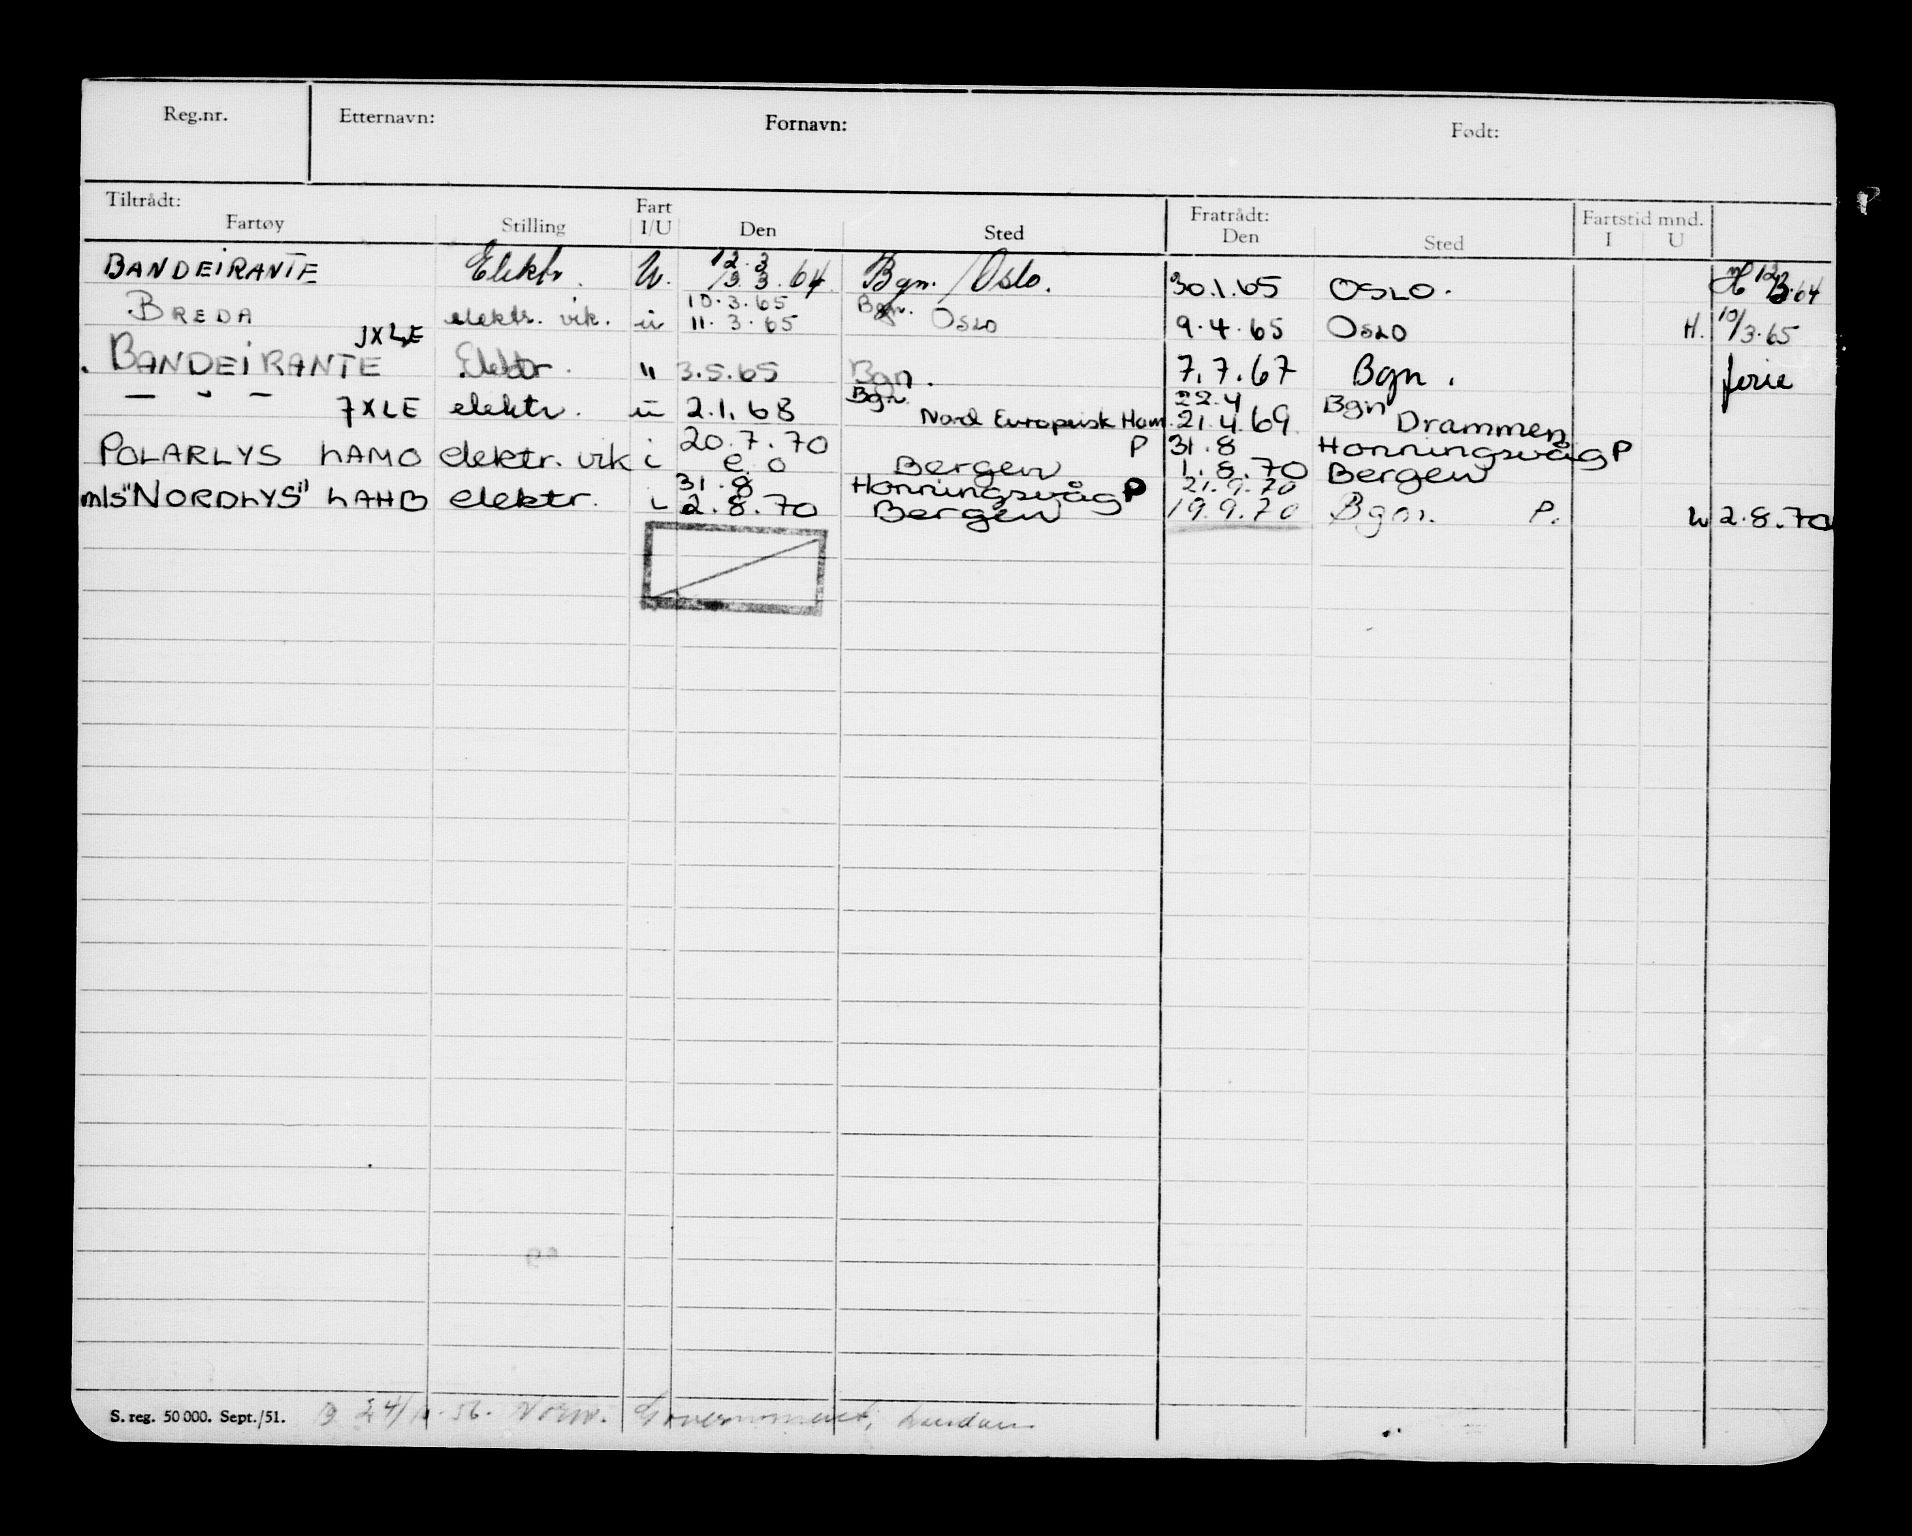 Reg.nr. Etternavn: Fornavn: Født:
Tiltrådt: Fart Fratrådt: Fartstid mnd.
Fartøy Stilling I/U Den Sted Den Sted I U
BANDEIRANTE Elektr. U. 12.3 13.3.64 Bgn. / Oslo. 30.1.65 OSLO. 12/3.64
BREDA elektr. vik. u 10.3.65 11.3.65 Bgn. OSLO 9.4.65 OSLO H. 10/3.65
JXLE
BANDEIRANTE Elektr. " 3.5.65 Bgn. 7.7.67 Bgn. ferie
— " — 7XLE elektr. u 2.1.68 Bgn. Nord Europeisk Havn 22.4 21.4.69 Bgn Drammen
POLARLYS LAMO elektr. vik i 20.7.70 e.o Bergen P 31.8 1.8.70 Honningsvåg P Bergen
m/s "NORDLYS" LAHB elektr. i 31.8 2.8.70 Honningsvåg P Bergen 21.9.70 19.9.70 Bgn. P. U 2.8.70
S. reg. 50 000. Sept./51. 56. Norw. Government, London